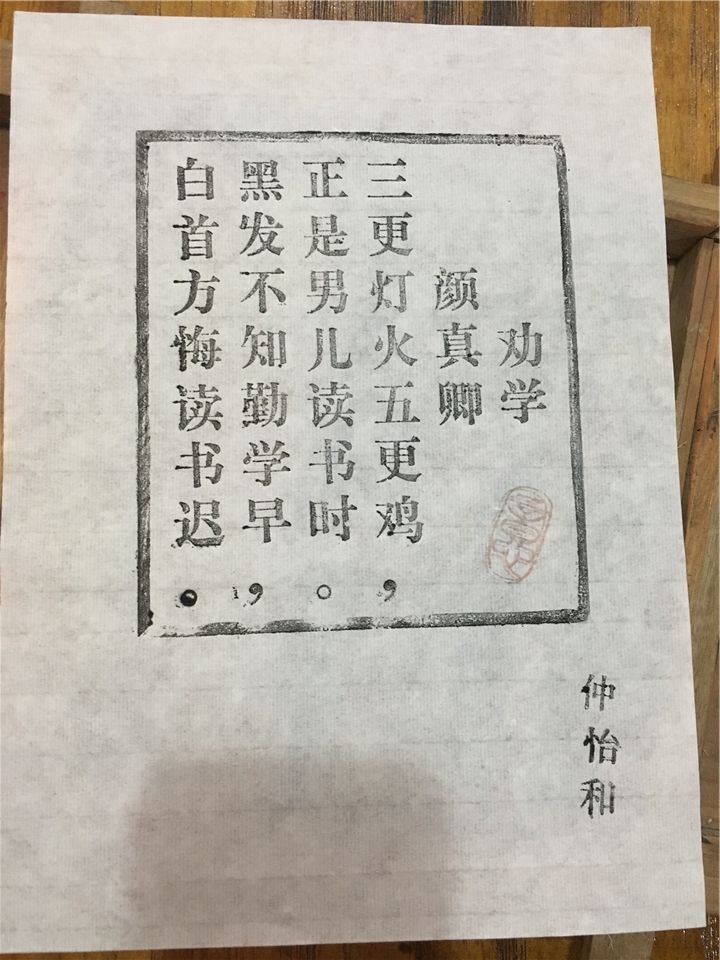 劝学
颜真卿
三更灯火五更鸡，
正是男儿读书时。
黑发不知勤学早，
白首方悔读书迟。
仲怡和